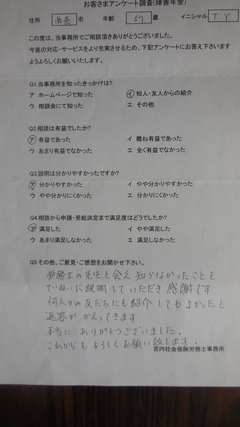 お客さまアンケート調査(障害年金)
住所 市 年齢 57 歳 イニシャル T Y
この度は、当事務所でご相談頂きありがとうございました。
今後の対応・サービスをより充実させるため、下記アンケートにお答え下さいます
ようよろしくお願いいたします。
Q1.当事務所を知ったきっかけは?
ア ホームページで知った イ 知人・友人からの紹介
ウ 相談会にて知った エ その他
Q2.相談は有益でしたか?
ア 有益であった イ 概ね有益であった
ウ あまり有益でなかった エ 全く有益でなかった
Q3.説明は分かりやすかったですか?
ア 分かりやすかった イ やや分かりやすかった
ウ やや分かりにくかった エ 分かりにくかった
Q4.相談から申請・受給決定まで満足度はどうでしたか?
ア 満足した イ やや満足した
ウ あまり満足しなかった エ 満足しなかった
Q5.その他、ご意見・ご感想をお聞かせ下さい。
労務士の先生と会え 知らなかったことを
ていねいに説明していただき 感謝です
何人かの友だちにも紹介してもよかったと
返答が かえってきます
本当に ありがとうございました。
これからも よろしくお願い致します。
宮内社会保険労務士事務所